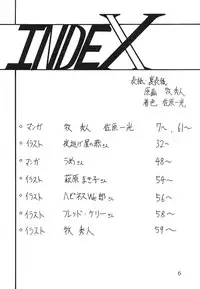 INDEX
表紙、裏表紙
原画 牧 秀人
着色 佐原一光
○ マンガ 牧 秀人 佐原一光 7〜、61〜
○ イラスト 夜逃げ屋の恭さん 32〜
○ マンガ うめさん 48〜
○ イラスト 萩原まき子さん 54〜
○ イラスト ハピネスWe郎さん 56〜
○ イラスト フレッド・ケリーさん 58〜
○ イラスト 牧 秀人 59〜
6